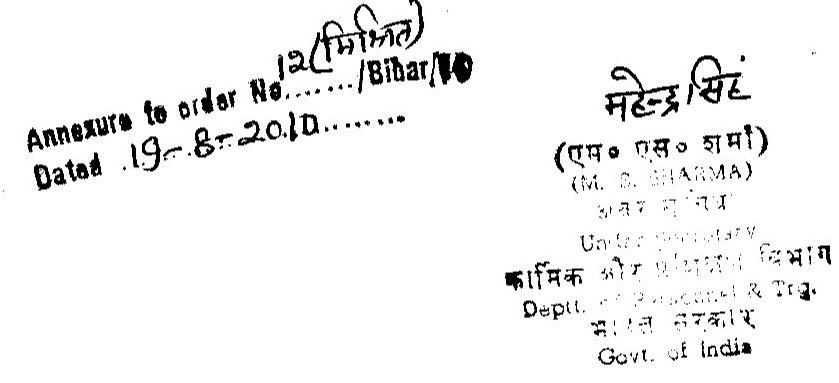 12(मिश्रित)
Annexure to order No......../Bihar/10
Dated .19-.8-.2010.........
महेन्द्र सिंह
(एम० एस० शर्मा)
(M. S. SHARMA)
अवर सचिव
Under Secretary
कार्मिक और प्रशिक्षण विभाग
Deptt. of Personnel & Trg.
भारत सरकार
Govt. of India